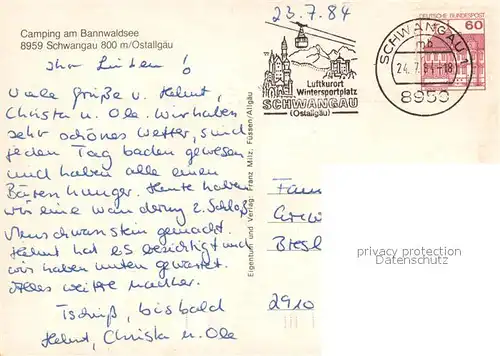 23.7.84
Camping am Bannwaldsee
8959 Schwangau 800 m/Ostallgäu
Ihr Lieben!
Viele Grüße v. Helmut,
Christa u. Ole. Wir haben
sehr schönes Wetter, sind
jeden Tag baden gewesen
und haben alle einen
Bärenhunger. Heute haben
wir eine Wanderung z. Schloß
Neuschwanstein gemacht.
Helmut hat es besichtigt und
wir haben unten gewartet.
Alles weitere nachher.
Tschüß, bis bald
Helmut, Christa u. Ole
Eigentum und Verlag: Franz Milz, Füssen/Allgäu
Luftkurort
Wintersportplatz
SCHWANGAU
(Ostallgäu)
SCHWANGAU 1
mb
24.7.84-18
8959
DEUTSCHE BUNDESPOST
60
Fam
2910
privacy protection
Datenschutz